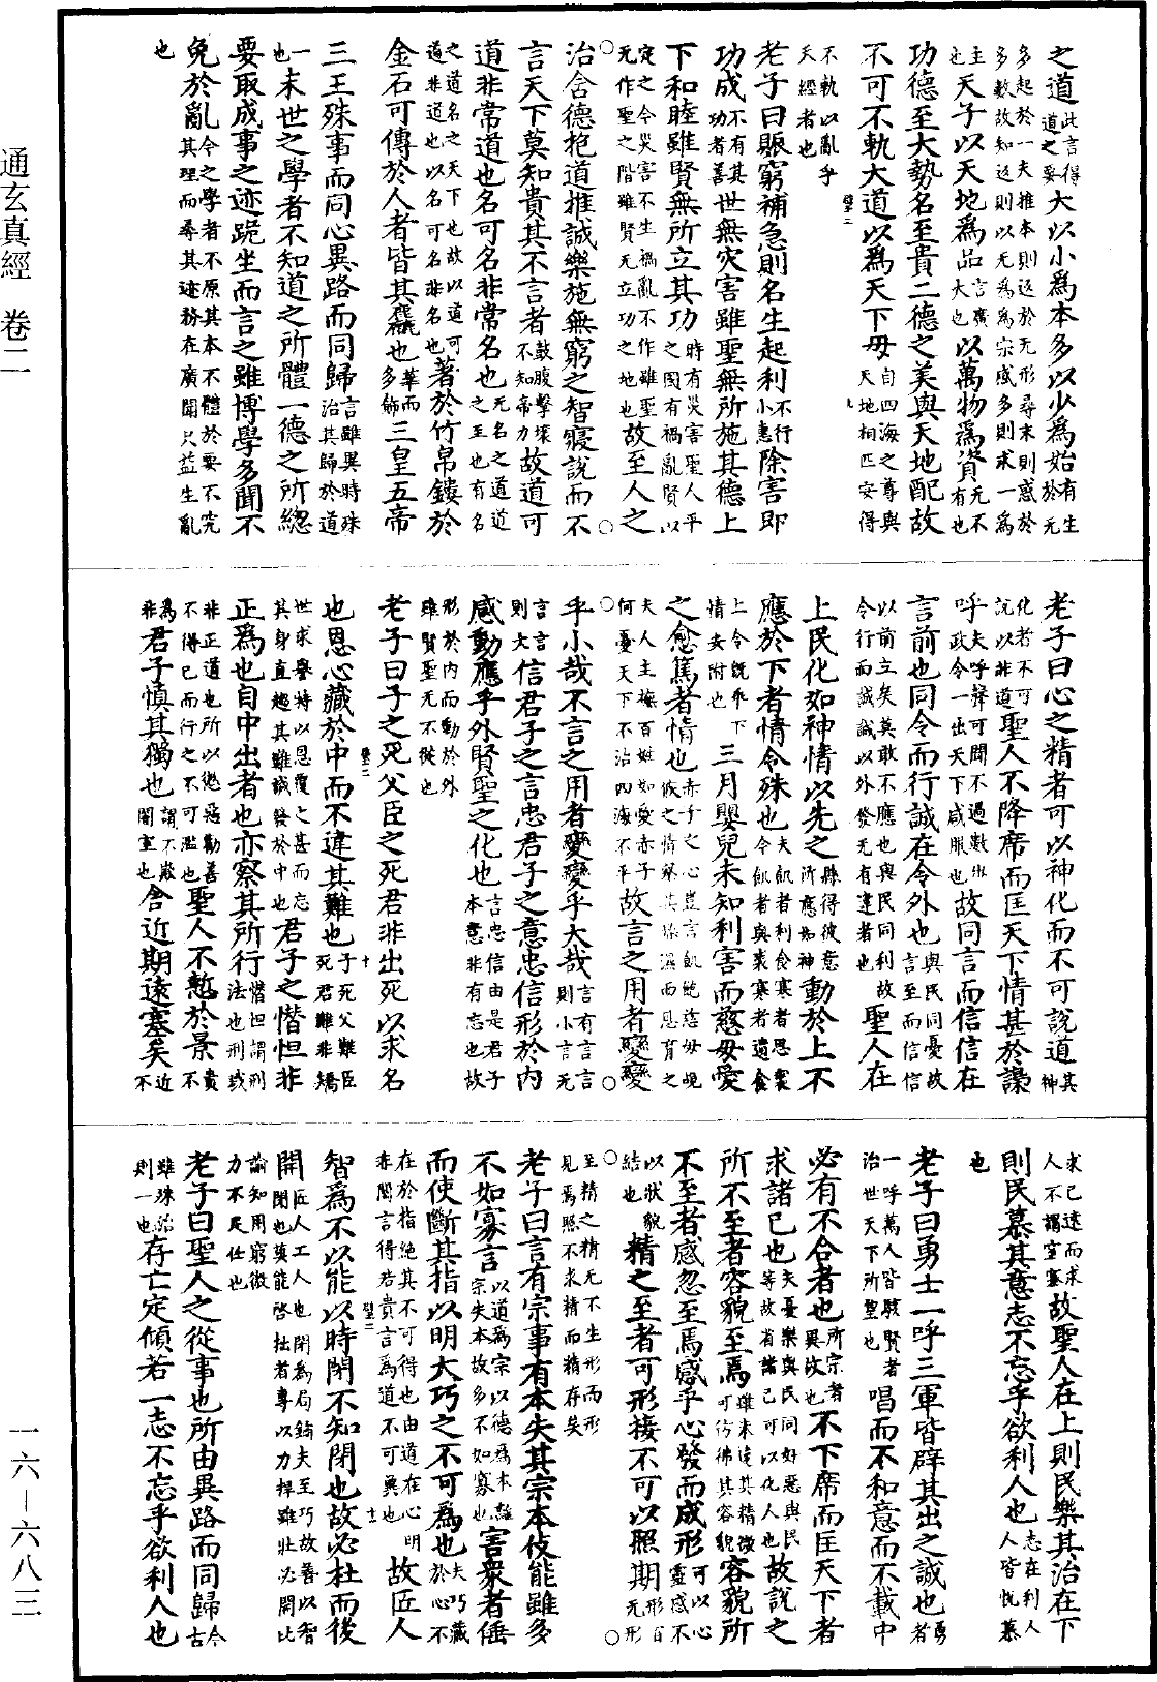 之道此言得道之要大以小為本多以少為始有生於无
多起於一夫推本則返於无形尋末則惑於多數故知返則以无為為宗惑多則求一為
主也天子以天地為品言廣大也以萬物為資无不有也
功德至大勢名至貴二德之美與天地配故
不可不軌大道以為天下母自四海之尊與天地相匹安得
不軌以亂乎天經者也
老子曰賑窮補急則名生起利不行小惠除害即
功成不有其功者善世無灾害雖聖無所施其德上
下和睦雖賢無所立其功時有災害聖人平之國有禍亂賢以
定之令災害不生禍亂不作雖聖无作聖之階雖賢无立功之地也故至人之
治含德抱道推誠樂施無窮之智寢說而不
言天下莫知貴其不言者鼓腹擊壤不知帝力故道可
道非常道也名可名非常名也无名之道道之至也有名
之道名之天下也故以道可道非道也以名可名非名也著於竹帛鏤於
金石可傳於人者皆其麤也華而多飾三皇五帝
三王殊事而同心異路而同歸言雖異時殊治其歸於道
一也末世之學者不知道之所體一德之所緫
要取成事之迹跪坐而言之雖博學多聞不
免於亂今之學者不原其本不體於要不究其理而尋其迹務在廣聞只益生亂
也
老子曰心之精者可以神化而不可說道其神
化者不可說以非道聖人不降席而匡天下情甚於譟
呼夫呼聲可聞不過數𡵉政令一出天下咸服也故同言而信信在
言前也同令而行誠在令外也與民同憂故言至而信信
以前立矣莫敢不應也與民同利故令行而誠誠以外發无有違者也聖人在
上民化如神情以先之縣得彼意所應如神動於上不
應於下者情令殊也夫飢者利食寒者思裳今飢者與裳寒者遺食
上令既乖下情安附也三月嬰兒未知利害而慈母愛
之愈篤者情也赤子之心豈言飢飽慈母規候之情察其燥濕而恩育之
夫人主撫百姓如愛赤子何憂天下不治四海不平故言之用者變變
乎小哉不言之用者變變乎大哉言有言言則小言无
言言則大信君子之言忠君子之意忠信形於內
感動應乎外賢聖之化也言忠信由是君子本意非有忘也故
形於內而動於外雖賢聖无不從也
老子曰子之死父臣之死君非出死以求名
也恩心藏於中而不違其難也子死父難臣死君難非矯
世求譽特以恩覆之甚而忘其身直趨其難誠發於中也君子之憯怛非
正為也自中出者也亦察其所行憯怛謂刑法也刑或
非正道也所以懲惡勸善不得已而行之不可濫也聖人不慙於景貴不
為非君子慎其獨也謂不欺闇室也舍近期遠塞矣近不
求己遠而求人不謂窒塞故聖人在上則民樂其治在下
則民慕其意志不忘乎欲利人也志在利人人皆悅慕
也
老子曰勇士一呼三軍皆辟其出之誠也勇者
一呼萬人皆駭賢者治世天下所聖也唱而不和意而不載中
必有不合者也所宗者異故也不下席而匡天下者
求諸己也夫憂樂與民同好惡與民等故省諸己可以化人也故說之
所不至者容貌至焉雖未達其精微可彷彿其容貌容貌所
不至者感忽至焉感乎心發而成形可以心靈感不
以狀貌結也精之至者可形接不可以照期形百无形
至精之精无不生形而形見焉照不求精而精存矣
老子曰言有宗事有本失其宗本伎能雖多
不如寡言以道為宗以德為本離宗失本故多不如寡也害衆者倕
而使斷其指以明大巧之不可為也夫巧藏於心不
在於指絕其不可得也由道在心明赤閣言得若貴言為道不可冀也故匠人
智為不以能以時閉不知閉也故必杜而後
開匠人工人也閉為局鑰夫至巧故善以智閉也莫能啓拙者專以力捍雖壯必開比
諭知用窮微力不足仕也
老子曰聖人之從事也所由異路而同歸今古
雖殊治則一也存亡定傾若一志不忘乎欲利人也
通玄真經 卷二
一六—六八三